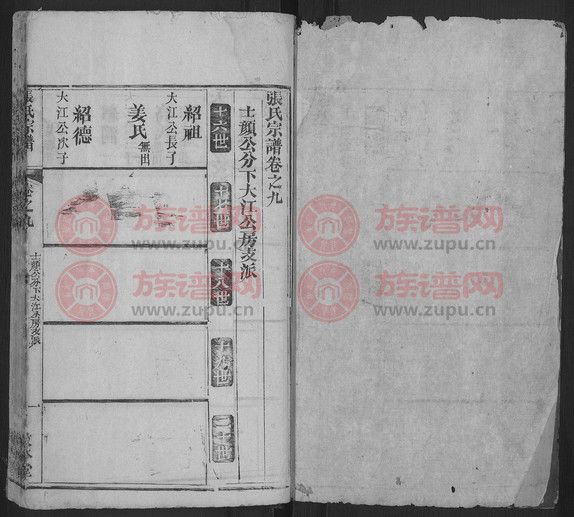 張氏宗譜卷之九
士顔公分下大江公房支派
十六世
十七世
十八世
十九世
二十世
紹祖
大江公長子
姜氏
無出
紹德
大江公次子
張氏宗譜
卷之九
士顔公分下大江公房支派
族谱网
www.zupu.cn
族谱网
www.zupu.cn
族谱网
www.zupu.cn
族谱网
www.zupu.cn
族谱网
www.zupu.cn
族谱网
www.zupu.cn